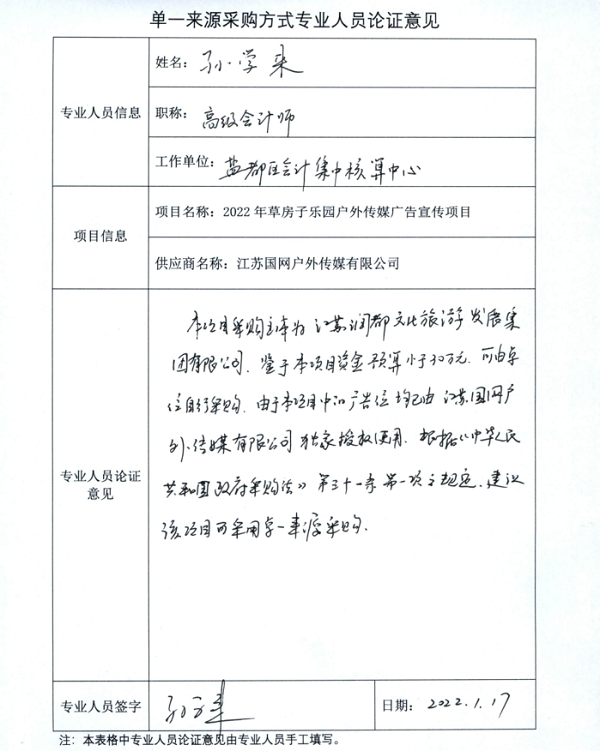 单一来源采购方式专业人员论证意见
专业人员信息
姓名：孙学来
职称：高级会计师
工作单位：盐都区会计集中核算中心
项目信息
项目名称：2022年草房子乐园户外传媒广告宣传项目
供应商名称：江苏国网户外传媒有限公司
专业人员论证
意见
本项目采购主体为江苏润都文化旅游发展集
团有限公司，鉴于本项目资金预算小于30万元，可由单
位自行采购。由于本项目中的广告位均已由江苏国网户
外传媒有限公司独家授权使用，根据《中华人民
共和国政府采购法》第三十一条第一项之规定，建议
该项目可采用单一来源采购.
专业人员签字
孙学来
日期：2022.1.17
注：本表格中专业人员论证意见由专业人员手工填写。